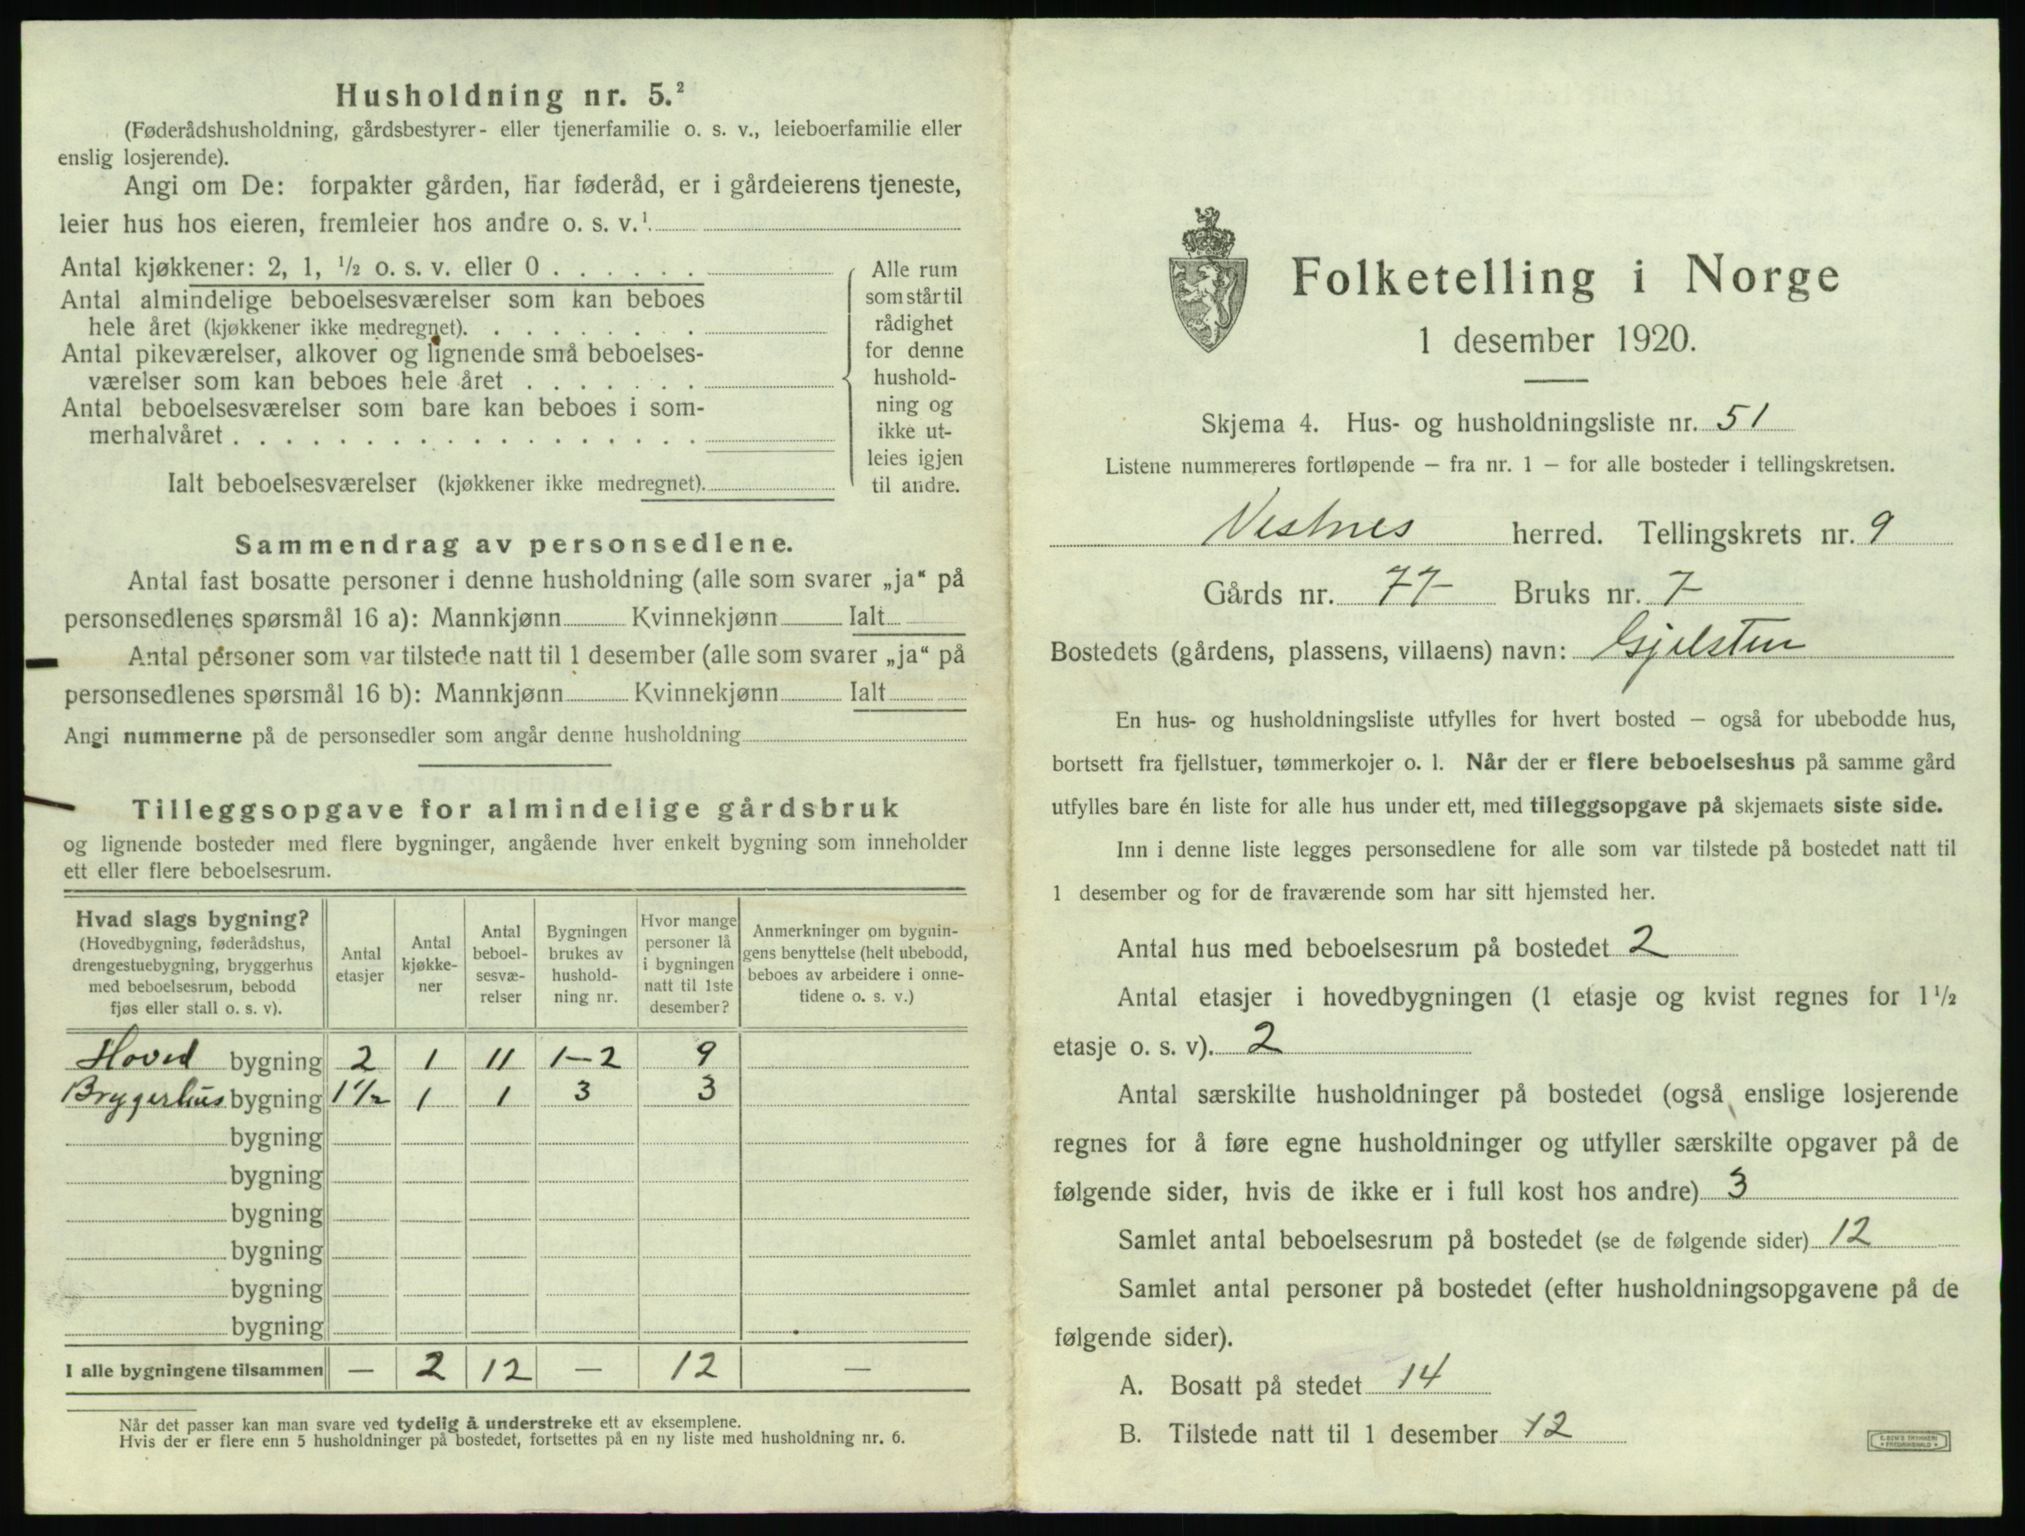 Husholdning nr. 5.²
(Føderådshusholdning, gårdsbestyrer- eller tjenerfamilie o. s. v., leieboerfamilie eller
enslig losjerende).
Angi om De: forpakter gården, har føderåd, er i gårdeierens tjeneste,
leier hus hos eieren, fremleier hos andre o. s. v.¹
Antal kjøkkener: 2, 1, ½ o. s. v. eller 0 . . . . . .
Antal almindelige beboelsesværelser som kan beboes
hele året (kjøkkener ikke medregnet). . . . . . . . .
Antal pikeværelser, alkover og lignende små beboelses-
værelser som kan beboes hele året . . . . . . .
Antal beboelsesværelser som bare kan beboes i som-
merhalvåret . . . . . . . . . . . . . . . . . .
Ialt beboelsesværelser (kjøkkener ikke medregnet).
Alle rum
som står til
rådighet
for denne
hushold-
ning og
ikke ut-
leies igjen
til andre.
Sammendrag av personsedlene.
Antal fast bosatte personer i denne husholdning (alle som svarer „ja“ på
personsedlenes spørsmål 16 a): Mannkjønn Kvinnekjønn Ialt
Antal personer som var tilstede natt til 1 desember (alle som svarer „ja“ på
personsedlenes spørsmål 16 b): Mannkjønn Kvinnekjønn Ialt
Angi nummerne på de personsedler som angår denne husholdning
Tilleggsopgave for almindelige gårdsbruk
og lignende bosteder med flere bygninger, angående hver enkelt bygning som inneholder
ett eller flere beboelsesrum.
Hvad slags bygning?
(Hovedbygning, føderådshus,
drengestuebygning, bryggerhus
med beboelsesrum, bebodd
fjøs eller stall o. s. v).
Antal
etasjer
Antal
kjøkke-
ner
Antal
beboel-
sesvæ-
relser
Bygningen
brukes av
hushold-
ning nr.
Hvor mange
personer lå
i bygningen
natt til 1ste
desember?
Anmerkninger om bygnin-
gens benyttelse (helt ubebodd,
beboes av arbeidere i onne-
tidene o. s. v.)
Hoved bygning 2 1 11 1-2 9
Brygerhus bygning 1½ 1 1 3 3
bygning
bygning
bygning
bygning
bygning
bygning
I alle bygningene tilsammen — 2 12 — 12 —
Når det passer kan man svare ved tydelig å understreke ett av eksemplene.
Hvis der er flere enn 5 husholdninger på bostedet, fortsettes på en ny liste med husholdning nr. 6.
Folketelling i Norge
1 desember 1920.
Skjema 4. Hus- og husholdningsliste nr. 51
Listene nummereres fortløpende – fra nr. 1 – for alle bosteder i tellingskretsen.
Vestnes herred. Tellingskrets nr. 9
Gårds nr. 77 Bruks nr. 7
Bostedets (gårdens, plassens, villaens) navn: Gjelsten
En hus- og husholdningsliste utfylles for hvert bosted – også for ubebodde hus,
bortsett fra fjellstuer, tømmerkojer o. l. Når der er flere beboelseshus på samme gård
utfylles bare én liste for alle hus under ett, med tilleggsopgave på skjemaets siste side.
Inn i denne liste legges personsedlene for alle som var tilstede på bostedet natt til
1 desember og for de fraværende som har sitt hjemsted her.
Antal hus med beboelsesrum på bostedet 2
Antal etasjer i hovedbygningen (1 etasje og kvist regnes for 1½
etasje o. s. v). 2
Antal særskilte husholdninger på bostedet (også enslige losjerende
regnes for å føre egne husholdninger og utfyller særskilte opgaver på de
følgende sider, hvis de ikke er i full kost hos andre) 3
Samlet antal beboelsesrum på bostedet (se de følgende sider) 12
Samlet antal personer på bostedet (efter husholdningsopgavene på de
følgende sider).
A. Bosatt på stedet 14
B. Tilstede natt til 1 desember 12